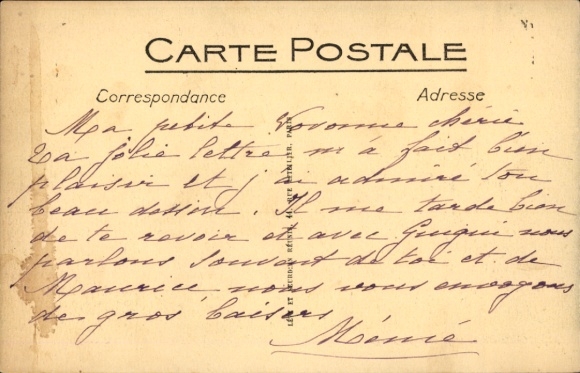 CARTE POSTALE
Correspondance
Adresse
Ma petite Vovonne chérie
Ta jolie lettre m'a fait bien
plaisir et j'ai admiré ton
beau dessin. Il me tarde bien
de te revoir et avec Guigui nous
parlons souvent de toi et de
Maurice nous vous envoyons
de gros baisers
Mémé
LÉVY ET NEURDEIN RÉUNIS, 44, RUE LETELLIER, PARIS